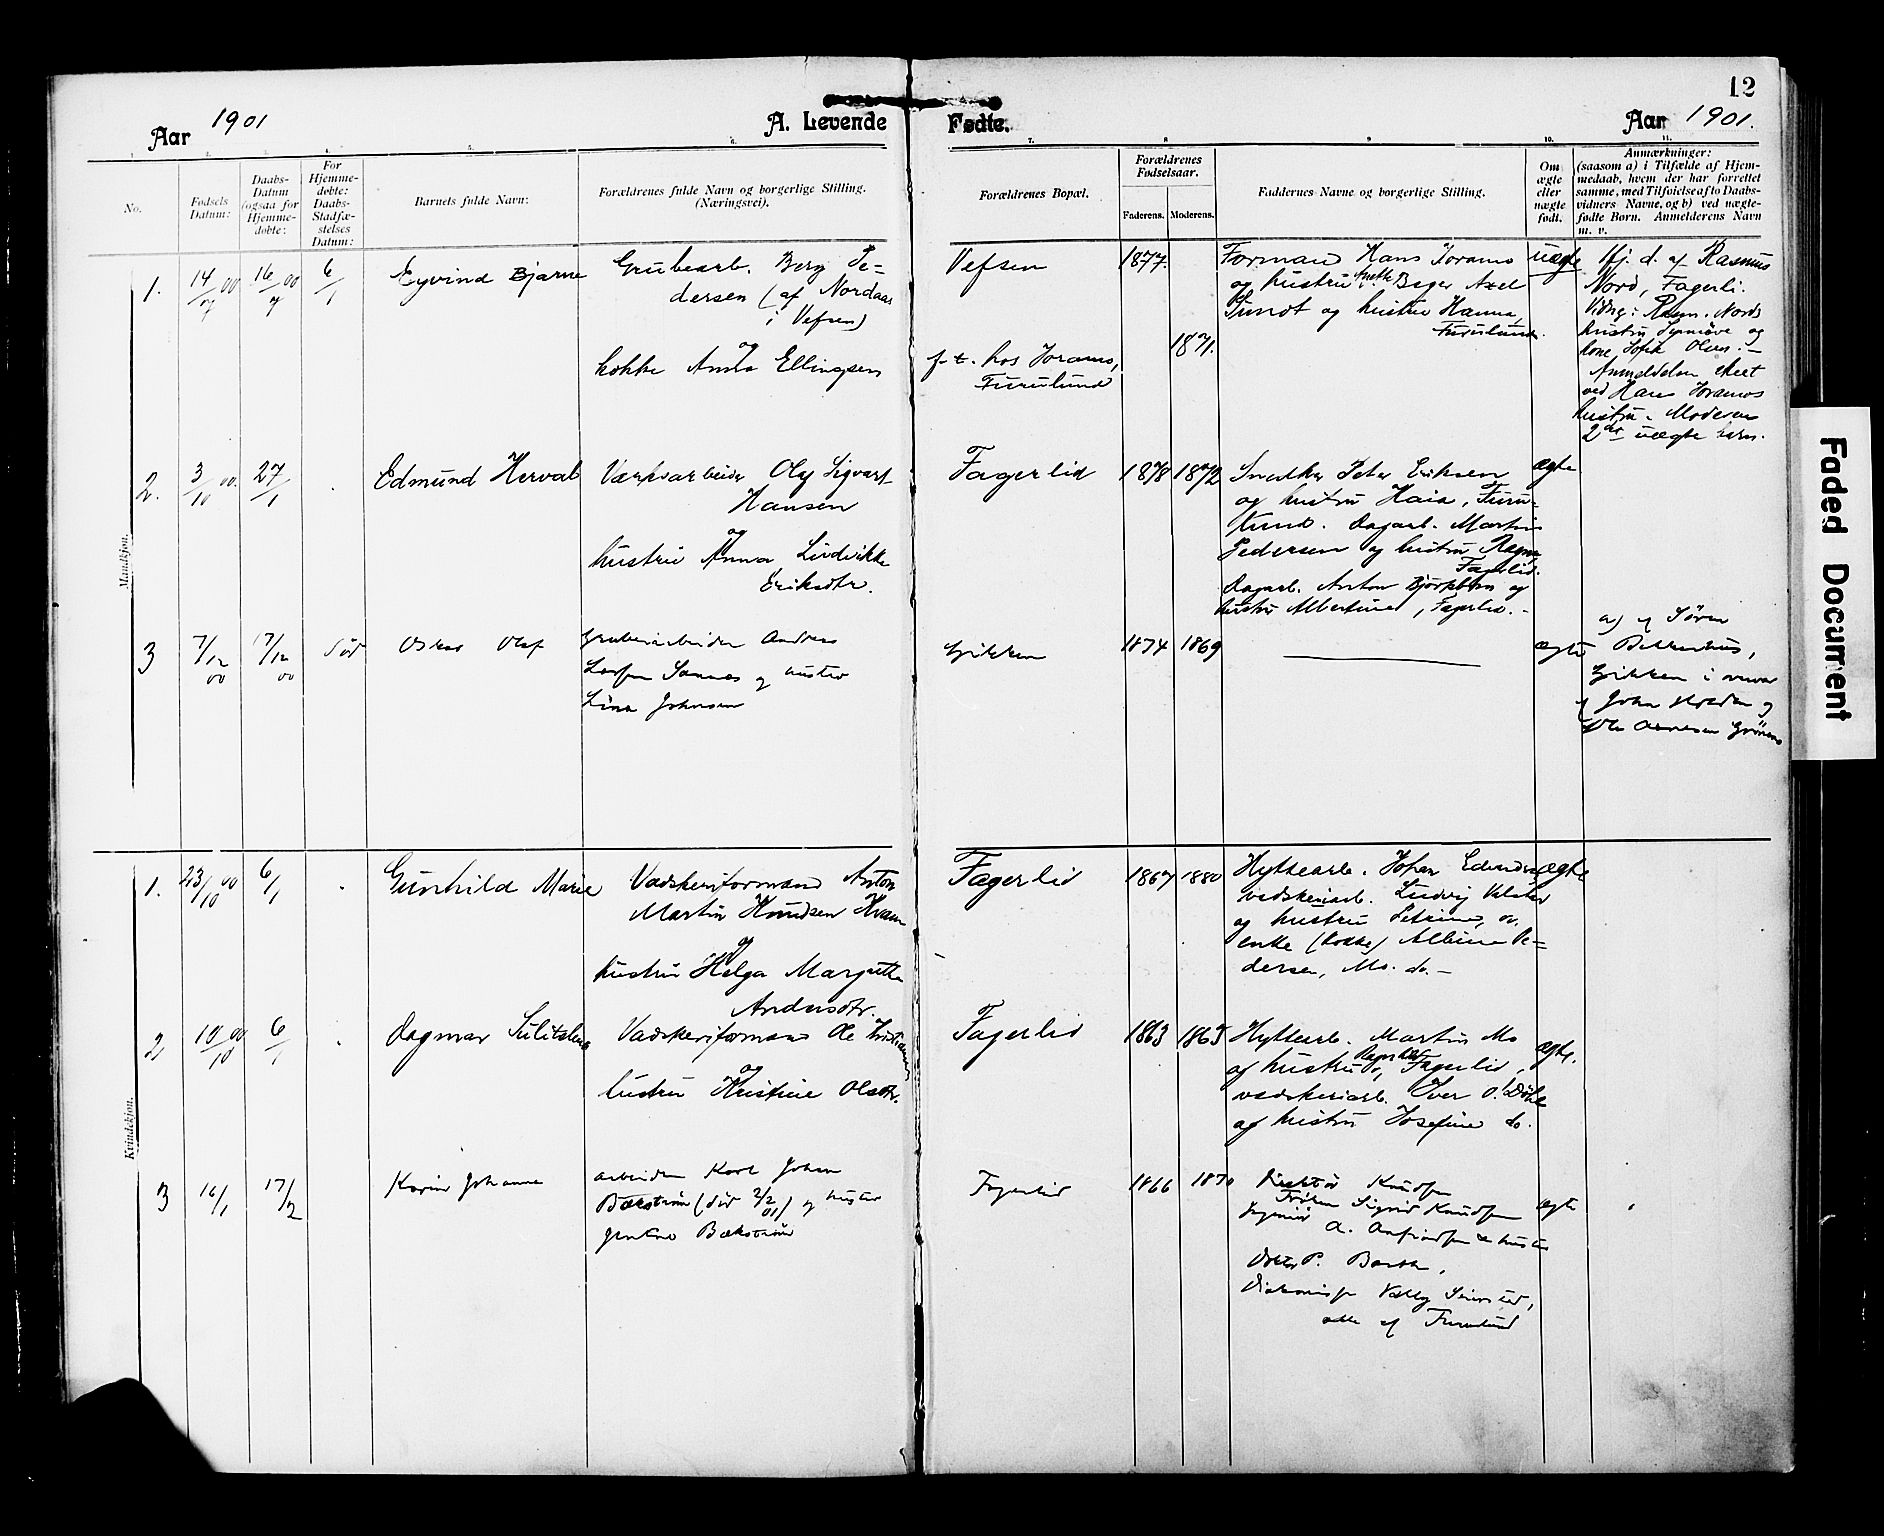 12
Aar 1901
A. Levende Fødte.
Aar 1901.
1. 2. 3. 4. 5. 6. 7. 8 9. 10. 11.
No.
Fødsels Datum:
Daabs-
Datum
(ogsaa for
Hjemme-
døbte:
For
Hjemme-
døbte:
Daabs-
Stadfæ-
stelses
Datum:
Barnets fulde Navn:
Forældrenes fulde Navn og borgerlige Stilling.
(Næringsvei).
Forældrenes Bopæl.
Forældrenes
Fødselsaar.
Faderens. Moderens.
Faddernes Navne og borgerlige Stilling.
Om
ægte
eller
uægte
født.
Anmærkninger:
(saasom a) i Tilfælde af Hjem-
medaab, hvem der har forrettet
samme, med Tilføielse af to Daabs-
vidners Navne, og b) ved uægte-
fødte Børn. Anmelderens Navn
m. v.
Mandkjøn.
1.
14/7 00
16/7 00
6/1
Eyvind Bjarne
Grubearb. Berg Pe-
dersen (af Nordaas
i Vefsen)
og
kokke Anna Ellingsen
Vefsen
f. t. hos Jorams,
Furulund
1877.
1871.
Formand Hans Jorams
og hustru Anette Bager Axel
Tundt og hustru Hanna,
Furulund.
uægte
Hj. d. af Rasmus
Nord, Fagerli.
Vidner: Rasm. Nords
hustru Synnøve og
kone Sofie Olsen. –
Anmeldelse skeet
ved Hans Joramos
hustru. Moderens
2det uægte barn.
2.
3/10 00.
27/1
Edmund Herval
Værksarbeider Ole Sigvart
Hansen
og
hustru Anna Ludvikke
Eriksdtr.
Fagerlid
1878 1872
Snedker Peter Eriksen
og hustru Haia, Furu-
lund. Dagarb. Martin
Pedersen og hustru Ragna
Fagerlid.
Dagarb. Anton Bjørkborn og
hustru Albertine, Fagerlid. –
ægte
3
7/12 00
17/12 00
død
Oskar Olaf
Grubearbeider Anders
Larsen Sannes og hustru
Lina Johnsen
Gikken
1874 1869
ægte
a) af Søren
Bekkenhus,
Gikken i nærvær
af Johan
Ole Arnesen
Kvindekjøn.
1.
23/10 00
6/1
Gunhild Marie
Vadskeriformand Anton
Martin Knudsen Kvam
og
hustru Helga Margrethe
Andersdtr.
Fagerlid
1867 1880
Hyttearb. Johan Edvardsen
vadskeriarb. Ludvig
og hustru Petrine, og
enke (kokke) Albine Pe-
dersen, Mo. do. –
ægte
2
10/10 00
6/1
Dagmar Sulitelma
Vadskeriformand Ole Kristiansen
og
hustru Kristine Olsdtr.
Fagerlid
1863 1865
Hyttearb. Martin Mo
og hustru Fagerlid,
vadskeriarb. Iver O.
og hustru Josefine do.
ægte.
3
16/1
17/2
Karin Johanne
arbeider Karl Johan
Bækström (død 2/2 01) og hustru
Bækström
Fagerlid
1866 1870
Direktør Knudsen
Frøken Sigrid Knudsen
Ingeniør A. & hustru
Doktor P.
Diakonisse
alle af Furulund
ægte
Faded Document